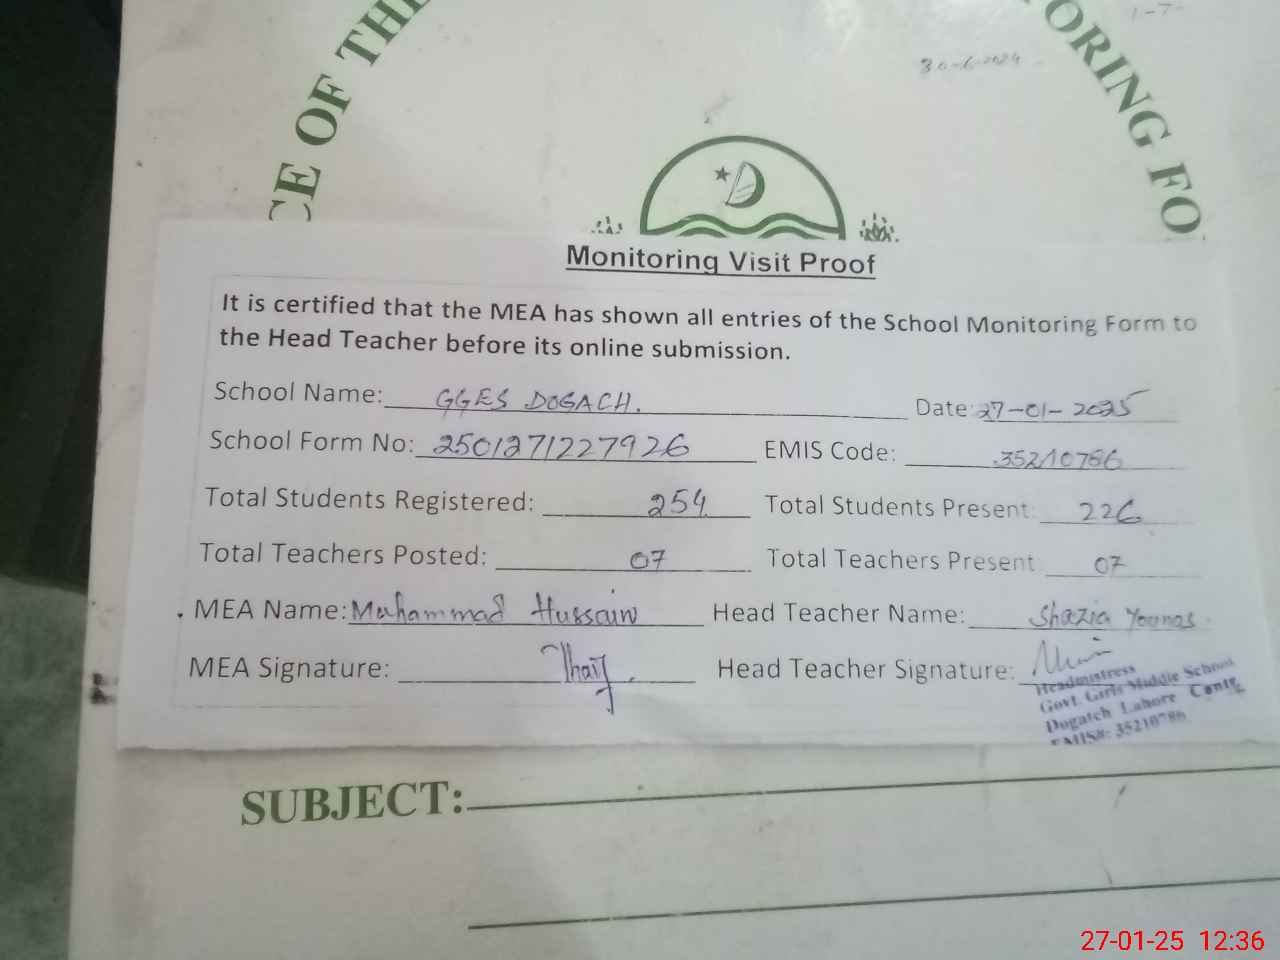 OF THE
ORING FO
30-6-2024
1-7-
Monitoring Visit Proof
It is certified that the MEA has shown all entries of the School Monitoring Form to
the Head Teacher before its online submission.
School Name: GGES DOGACH. Date: 27-01-2025
School Form No: 2501271227926 EMIS Code: 35210786
Total Students Registered: 254 Total Students Present: 226
Total Teachers Posted: 07 Total Teachers Present: 07
MEA Name: Muhammad Hussain Head Teacher Name: Shazia Younas.
MEA Signature: Head Teacher Signature:
Headmistress
Govt. Girls Middle School
Dogatch Lahore Cantt.
EMIS#: 35210786
SUBJECT:
27-01-25 12:36